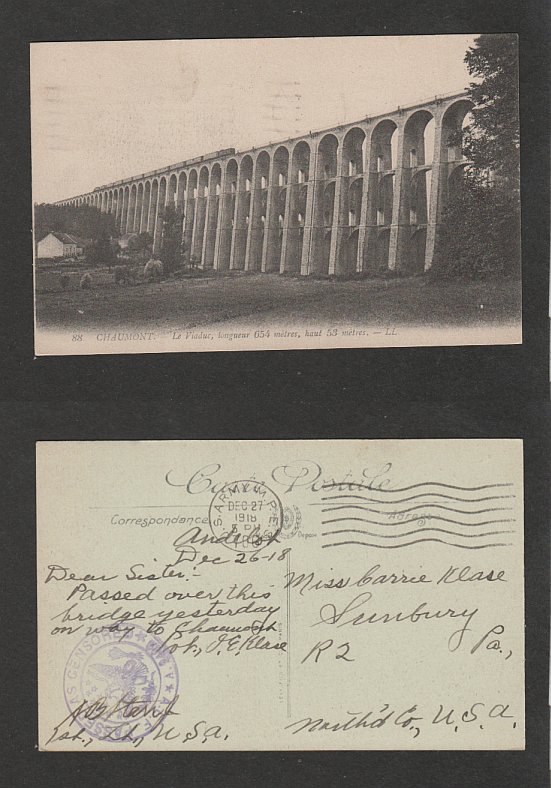 88 CHAUMONT. — Le Viaduc, longueur 654 mètres, haut 53 mètres. — LL
Carte Postale
Correspondance
Adresse
U.S. ARMY M.P.E.S.
DEC 27
1918
5 PM
Dec 26-18
Dear Sister:-
Passed over this
bridge yesterday
on way to
J. E. Klase
Miss Carrie Klase
Sunbury
R2 Pa.,
North'd Co., U.S.A.
A.E.F. PASSED AS CENSORED
1st. Lt., U.S.A.